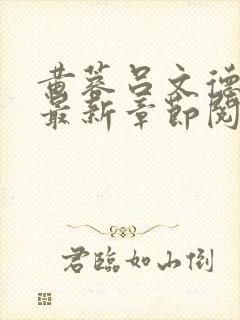 黄蓉吕文德
最新章节阅
君临如山倒